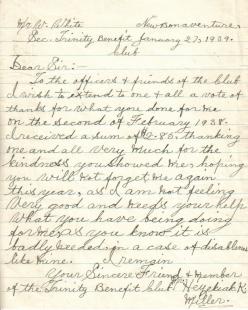 Mr W. White New Bonaventure,
Sec. Trinity Benefit January 27, 1939.
Club
Dear Sir:-
To the officers & friends of the Club
I wish to extend to one & all a vote of
thanks for what you done for me
on the second of February 1938.
I received a sum of 2.85. thanking
one and all very much for the
kindness you showed me, hoping
you will not forget me again
this year, as I am not feeling
very good and needs your help
what you have being doing
for me, as you know it is
badly needed in a case of
like mine. I remain
Your Sincere Friend & Member
of the Trinity Benefit Club. Hezekiah K.
Miller.